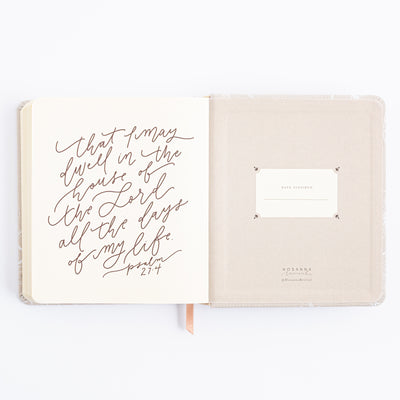 that I may
dwell in the
house of
the Lord
all the days
of my life.
psalm
27:4
DATE FINISHED
HOSANNA